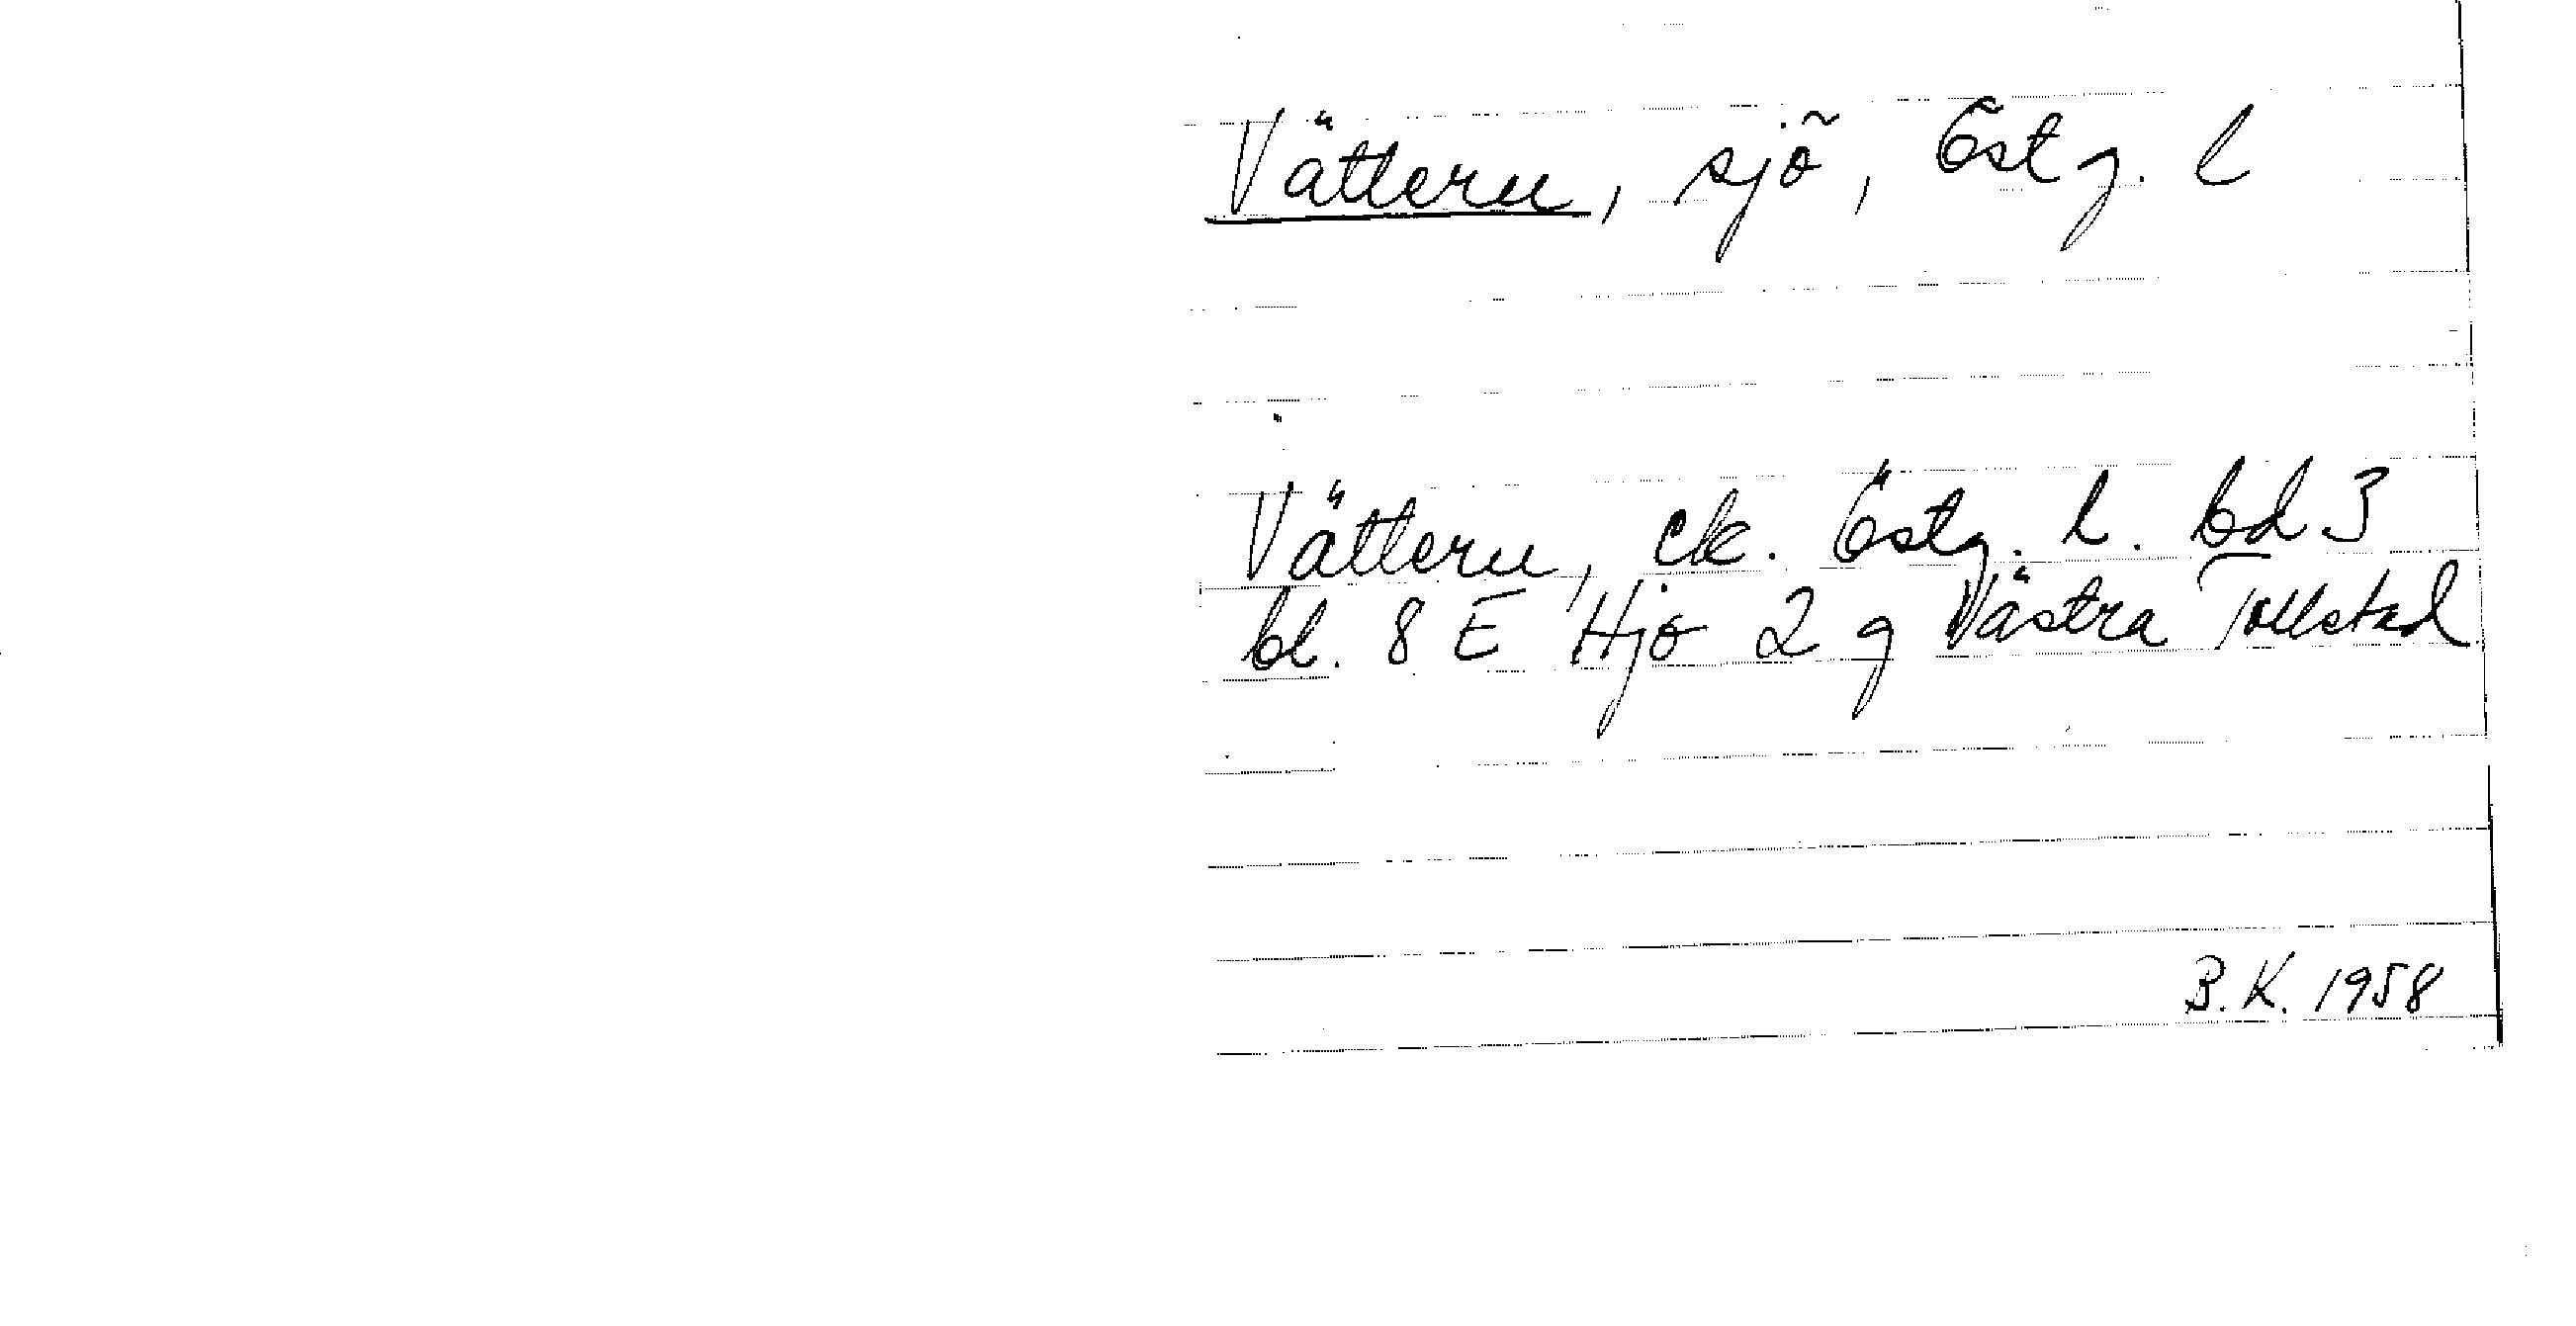 Vättern, sjö, Östg. l
Vättern, ek. Östg. l. bd 3
bl. 8 E Hjo 2 g Västra Tollstad
B.K. 1958